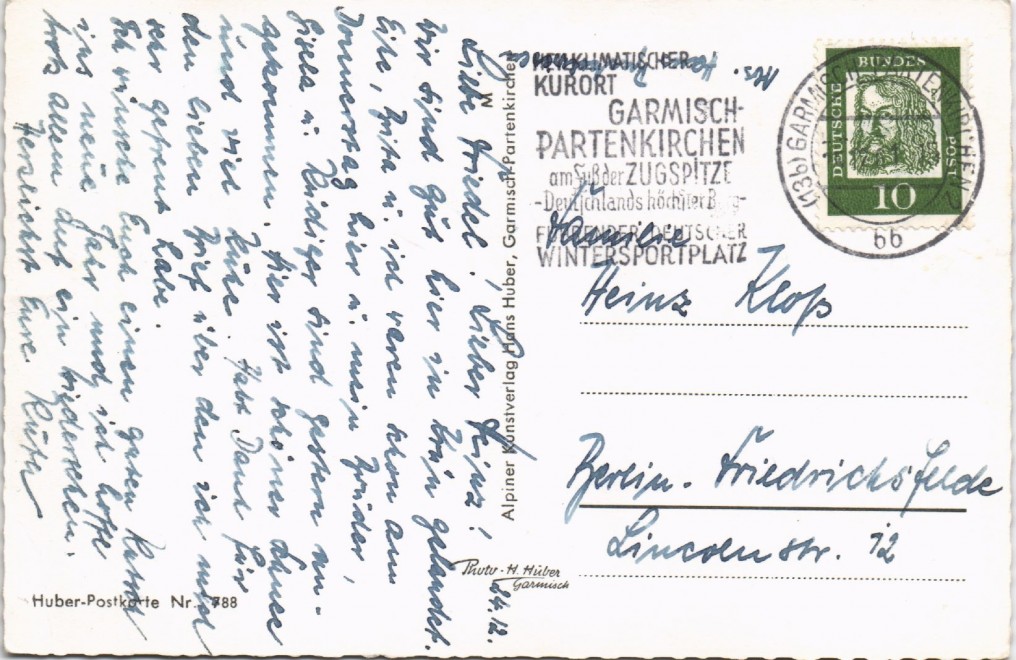 Liebe Friedel, Lieber Heinz!
24.12.
Wir sind gut hier in Krün gelandet.
Eike, Brita u. ich waren schon am
Donnerstag hier u. mein Bruder,
Gisela u. Rüdiger sind gestern an-
gekommen. Hier ist schöner Schnee
und viel Ruhe. Habt Dank für
den lieben Brief über den ich mich
sehr gefreut habe.
Ich wünsche Euch einen guten Rutsch
ins neue Jahr und ich hoffe
trotz allem auf ein Wiedersehen.
Herzlichst Eure Ruth
Huber-Postkarte Nr. 788
Alpiner Kunstverlag Hans Huber, Garmisch-Partenkirchen
M
Photo-H. Huber
Garmisch
Abs.
HEILKLIMATISCHER
KURORT
GARMISCH-
PARTENKIRCHEN
am Fuß der ZUGSPITZE
-Deutschlands höchster Berg-
FÜHRENDER DEUTSCHER
WINTERSPORTPLATZ
(13b) GARMISCH-PARTENKIRCHEN 2
bb
DEUTSCHE
BUNDES
POST
10
Familie
Heinz Kloß
Berlin-Friedrichsfelde
Lincolnstr. 12